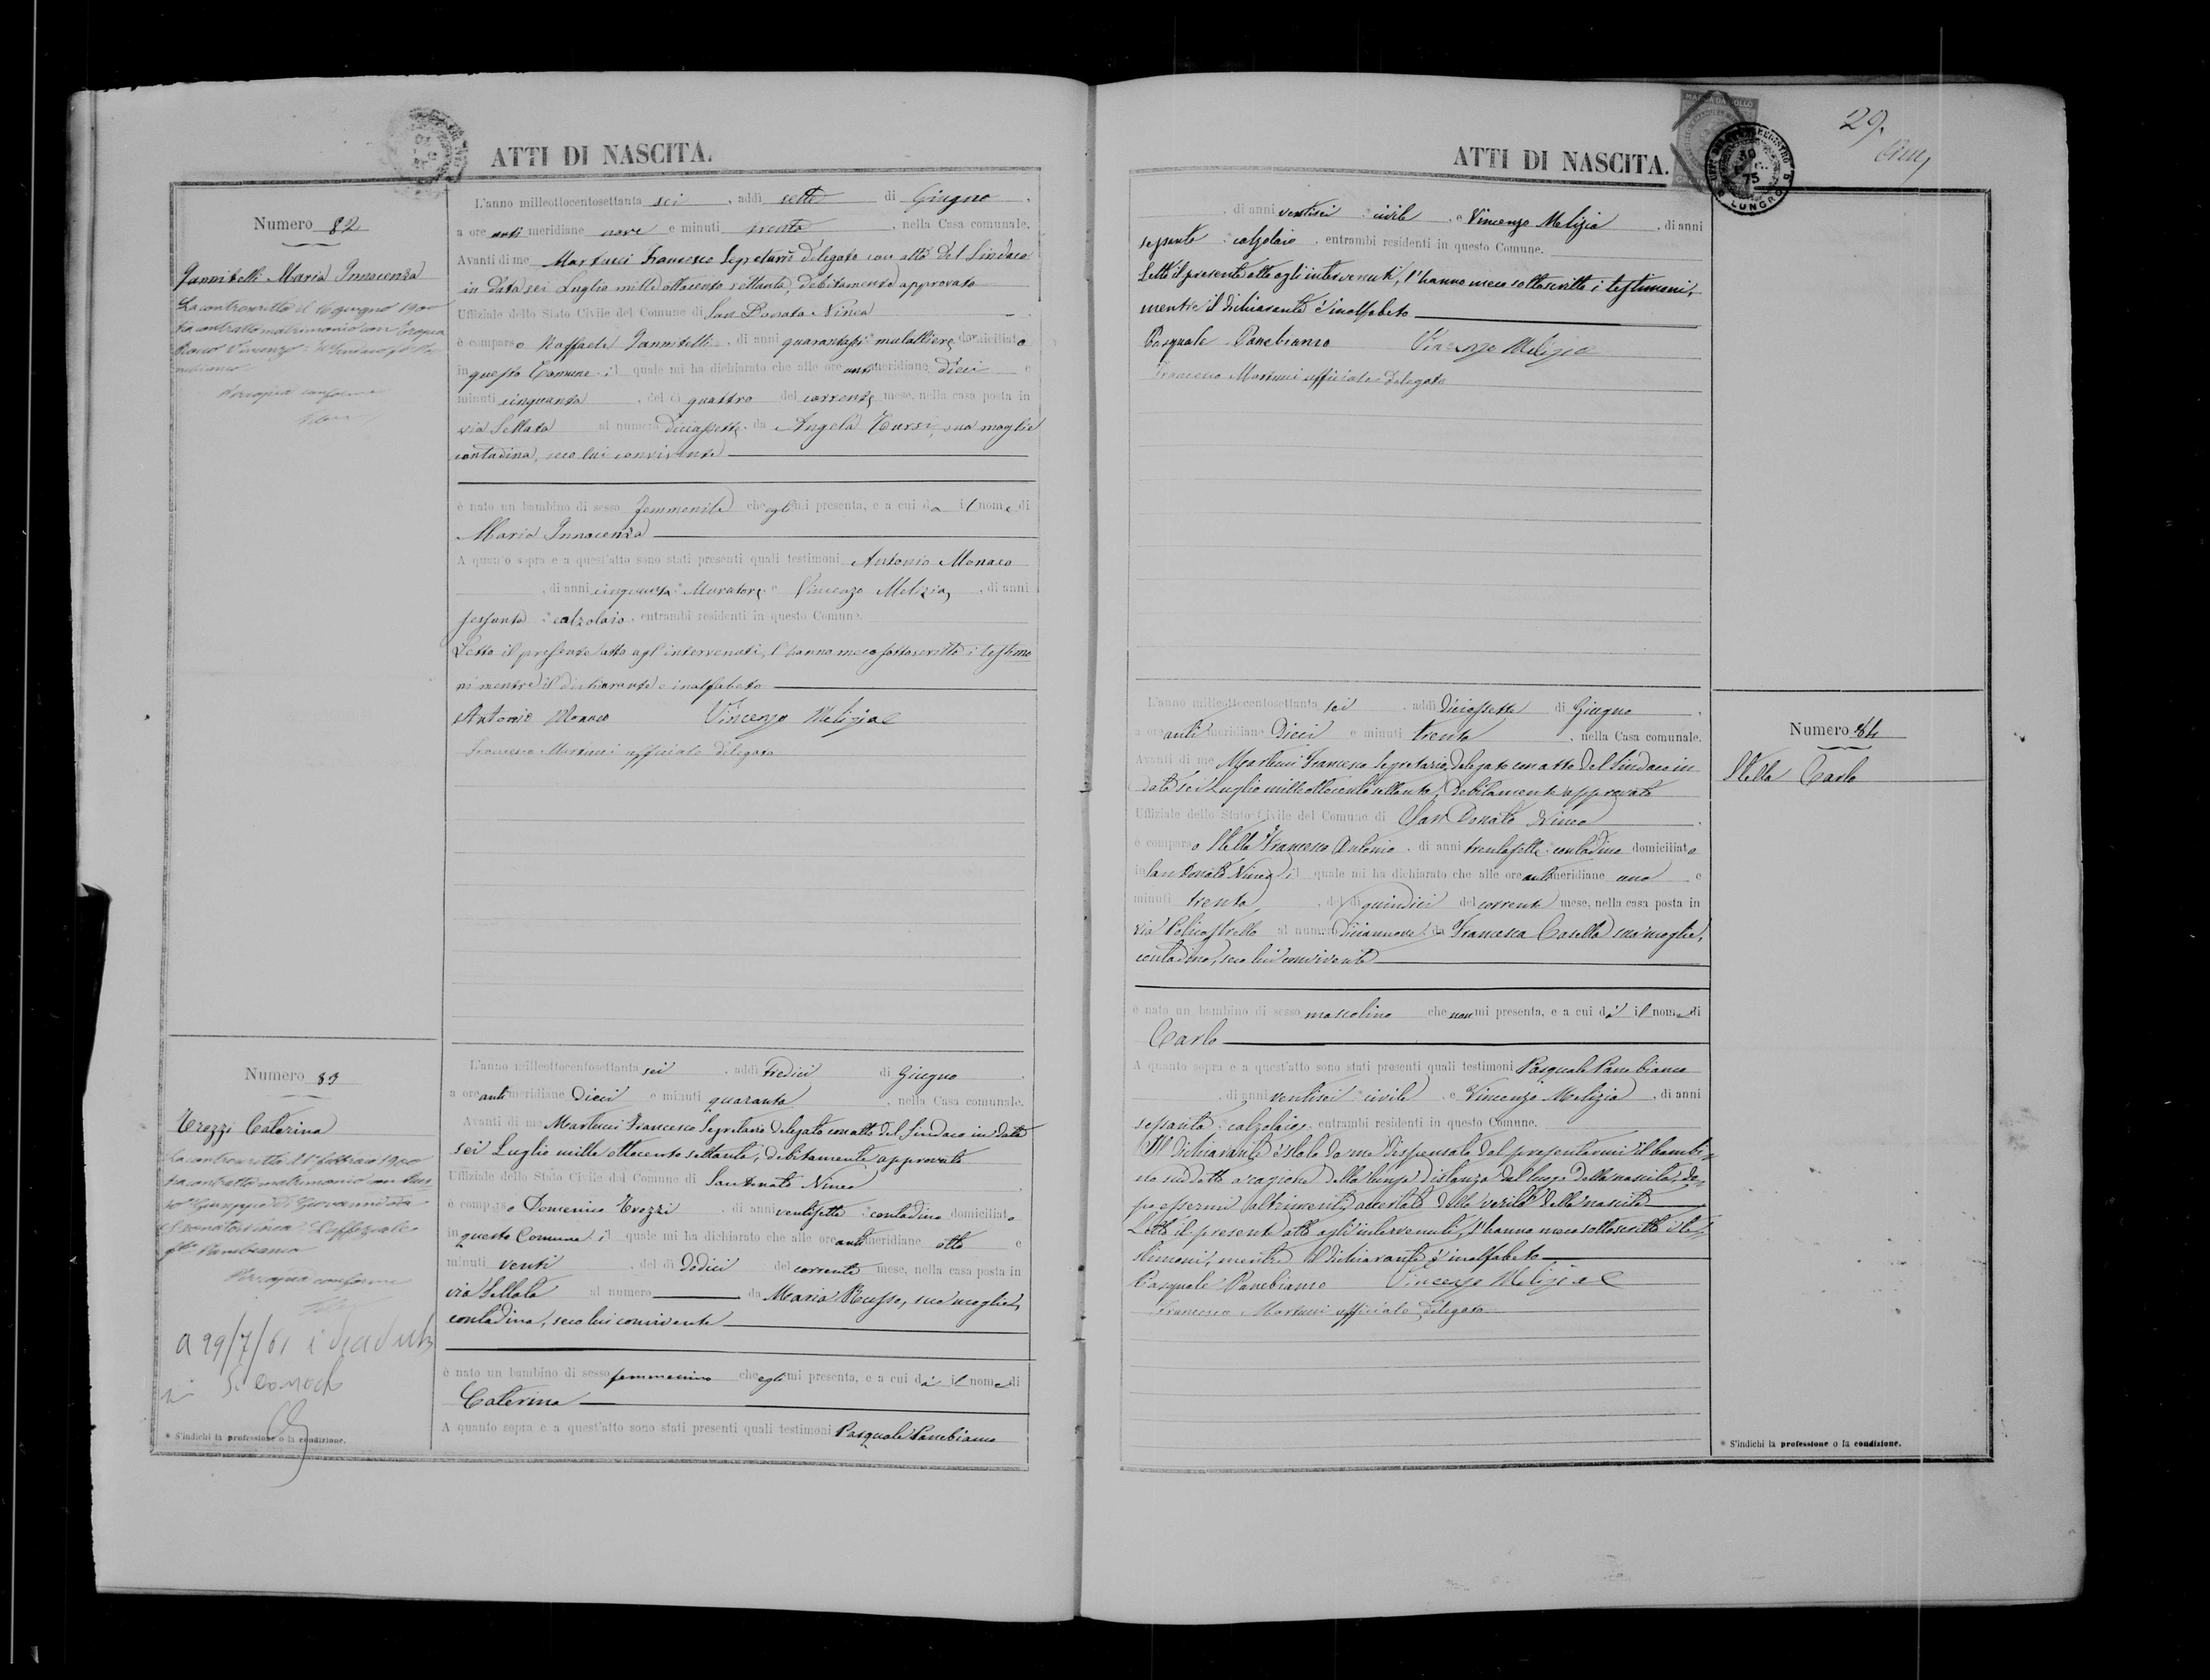 ATTI DI NASCITA.
Numero 82
Iannitelli Maria Innocenza
La controscritta il 16 giugno 1900
ha contratto matrimonio con
Vincenzo
Per copia conforme
L'anno milleottocentosettanta sei, addì sette di Giugno,
a ore anti meridiane nove e minuti trenta, nella Casa comunale.
Avanti di me Martucci Francesco Segretario delegato con atto del Sindaco
in data sei Luglio mille ottocento settanta, debitamente approvato
Uffiziale dello Stato Civile del Comune di San Donato Ninea
è comparso Raffaele Iannitelli, di anni quarantasei mulattiere domiciliato
in questo Comune il quale mi ha dichiarato che alle ore antimeridiane dieci e
minuti cinquanta, del dì quattro del corrente mese, nella casa posta in
via Sellata al numero diciassette da Angela Tursi, sua moglie
contadina, seco lui convivente
è nato un bambino di sesso femminile che egli mi presenta, e a cui da il nome di
Maria Innocenza
A quanto sopra e a quest'atto sono stati presenti quali testimoni Antonio Monaco
, di anni cinquanta Muratore e Vincenzo Melizia, di anni
sessanta calzolaio entrambi residenti in questo Comune.
Letto il presente atto agl'intervenuti, l'hanno meco sottoscritto i testimo
ni mentre il dichiarante è inalfabeto
Antonio Monaco Vincenzo Melizia
Francesco Martucci ufficiale delegato
Numero 83
Trozzi Caterina
La controscritta il 1° febbraio 1900
ha contratto matrimonio con
Giuseppe di Giovanni da
S. Donato Ninea L'uffiziale
Panebianco
Per copia conforme
a 29/7/61 è deceduta
* S'indichi la professione o la condizione.
L'anno milleottocentosettanta sei, addì tredici di Giugno,
a ore anti meridiane Dieci e minuti quaranta, nella Casa comunale.
Avanti di me Martucci Francesco Segretario delegato con atto del Sindaco in data
sei Luglio mille ottocento settanta, debitamente approvato
Uffiziale dello Stato Civile del Comune di San Donato Ninea
è comparso Domenico Trozzi, di anni ventisette contadino domiciliato
in questo Comune il quale mi ha dichiarato che alle ore antimeridiane otto e
minuti venti, del dì dodici del corrente mese, nella casa posta in
via Sellata al numero da Maria Russo, sua moglie,
contadina, seco lui convivente
è nato un bambino di sesso femmenino che egli mi presenta, e a cui dà il nome di
Caterina
A quanto sopra e a quest'atto sono stati presenti quali testimoni Pasquale Panebianco
ATTI DI NASCITA.
MARCA DA BOLLO
UFFIZIO DEL REGISTRO
LUNGRO
29.
, di anni ventisei civile, e Vincenzo Melizia, di anni
sessanta calzolaio, entrambi residenti in questo Comune.
Letto il presente atto agli intervenuti, l'hanno meco sottoscritto i testimoni,
mentre il dichiarante è inalfabeto
Pasquale Panebianco Vincenzo Melizia
Francesco Martucci ufficiale delegato
L'anno milleottocentosettanta sei, addì diciassette di Giugno,
a ore anti meridiane Dieci e minuti trenta, nella Casa comunale.
Avanti di me Martucci Francesco Segretario, delegato con atto del Sindaco in
data sei Luglio mille ottocento settanta, debitamente approvato
Uffiziale dello Stato Civile del Comune di San Donato Ninea
è comparso Stella Francesco Antonio, di anni trentasette contadino domiciliato
in San Donato Ninea il quale mi ha dichiarato che alle ore antimeridiane una e
minuti trenta, del dì quindici del corrente mese, nella casa posta in
via Policastrello al numero diciannove da Francesca Casella sua moglie,
contadina, seco lui convivente
è nato un bambino di sesso mascolino che non mi presenta, e a cui dà il nome di
Carlo
A quanto sopra e a quest'atto sono stati presenti quali testimoni Pasquale Panebianco
, di anni ventisei civile, e Vincenzo Melizia, di anni
sessanta calzolaio, entrambi residenti in questo Comune.
Il dichiarante è stato da me dispensato dal presentarmi il bambi=
no suddetto a cagione della lunga distanza dal luogo della nascita, do=
po essermi altrimenti accertato della verità della nascita
Letto il presente atto agli intervenuti, l'hanno meco sottoscritto i te=
stimoni, mentre il dichiarante è inalfabeto
Pasquale Panebianco Vincenzo Melizia
Francesco Martucci ufficiale delegato
Numero 84
Stella Carlo
* S'indichi la professione o la condizione.